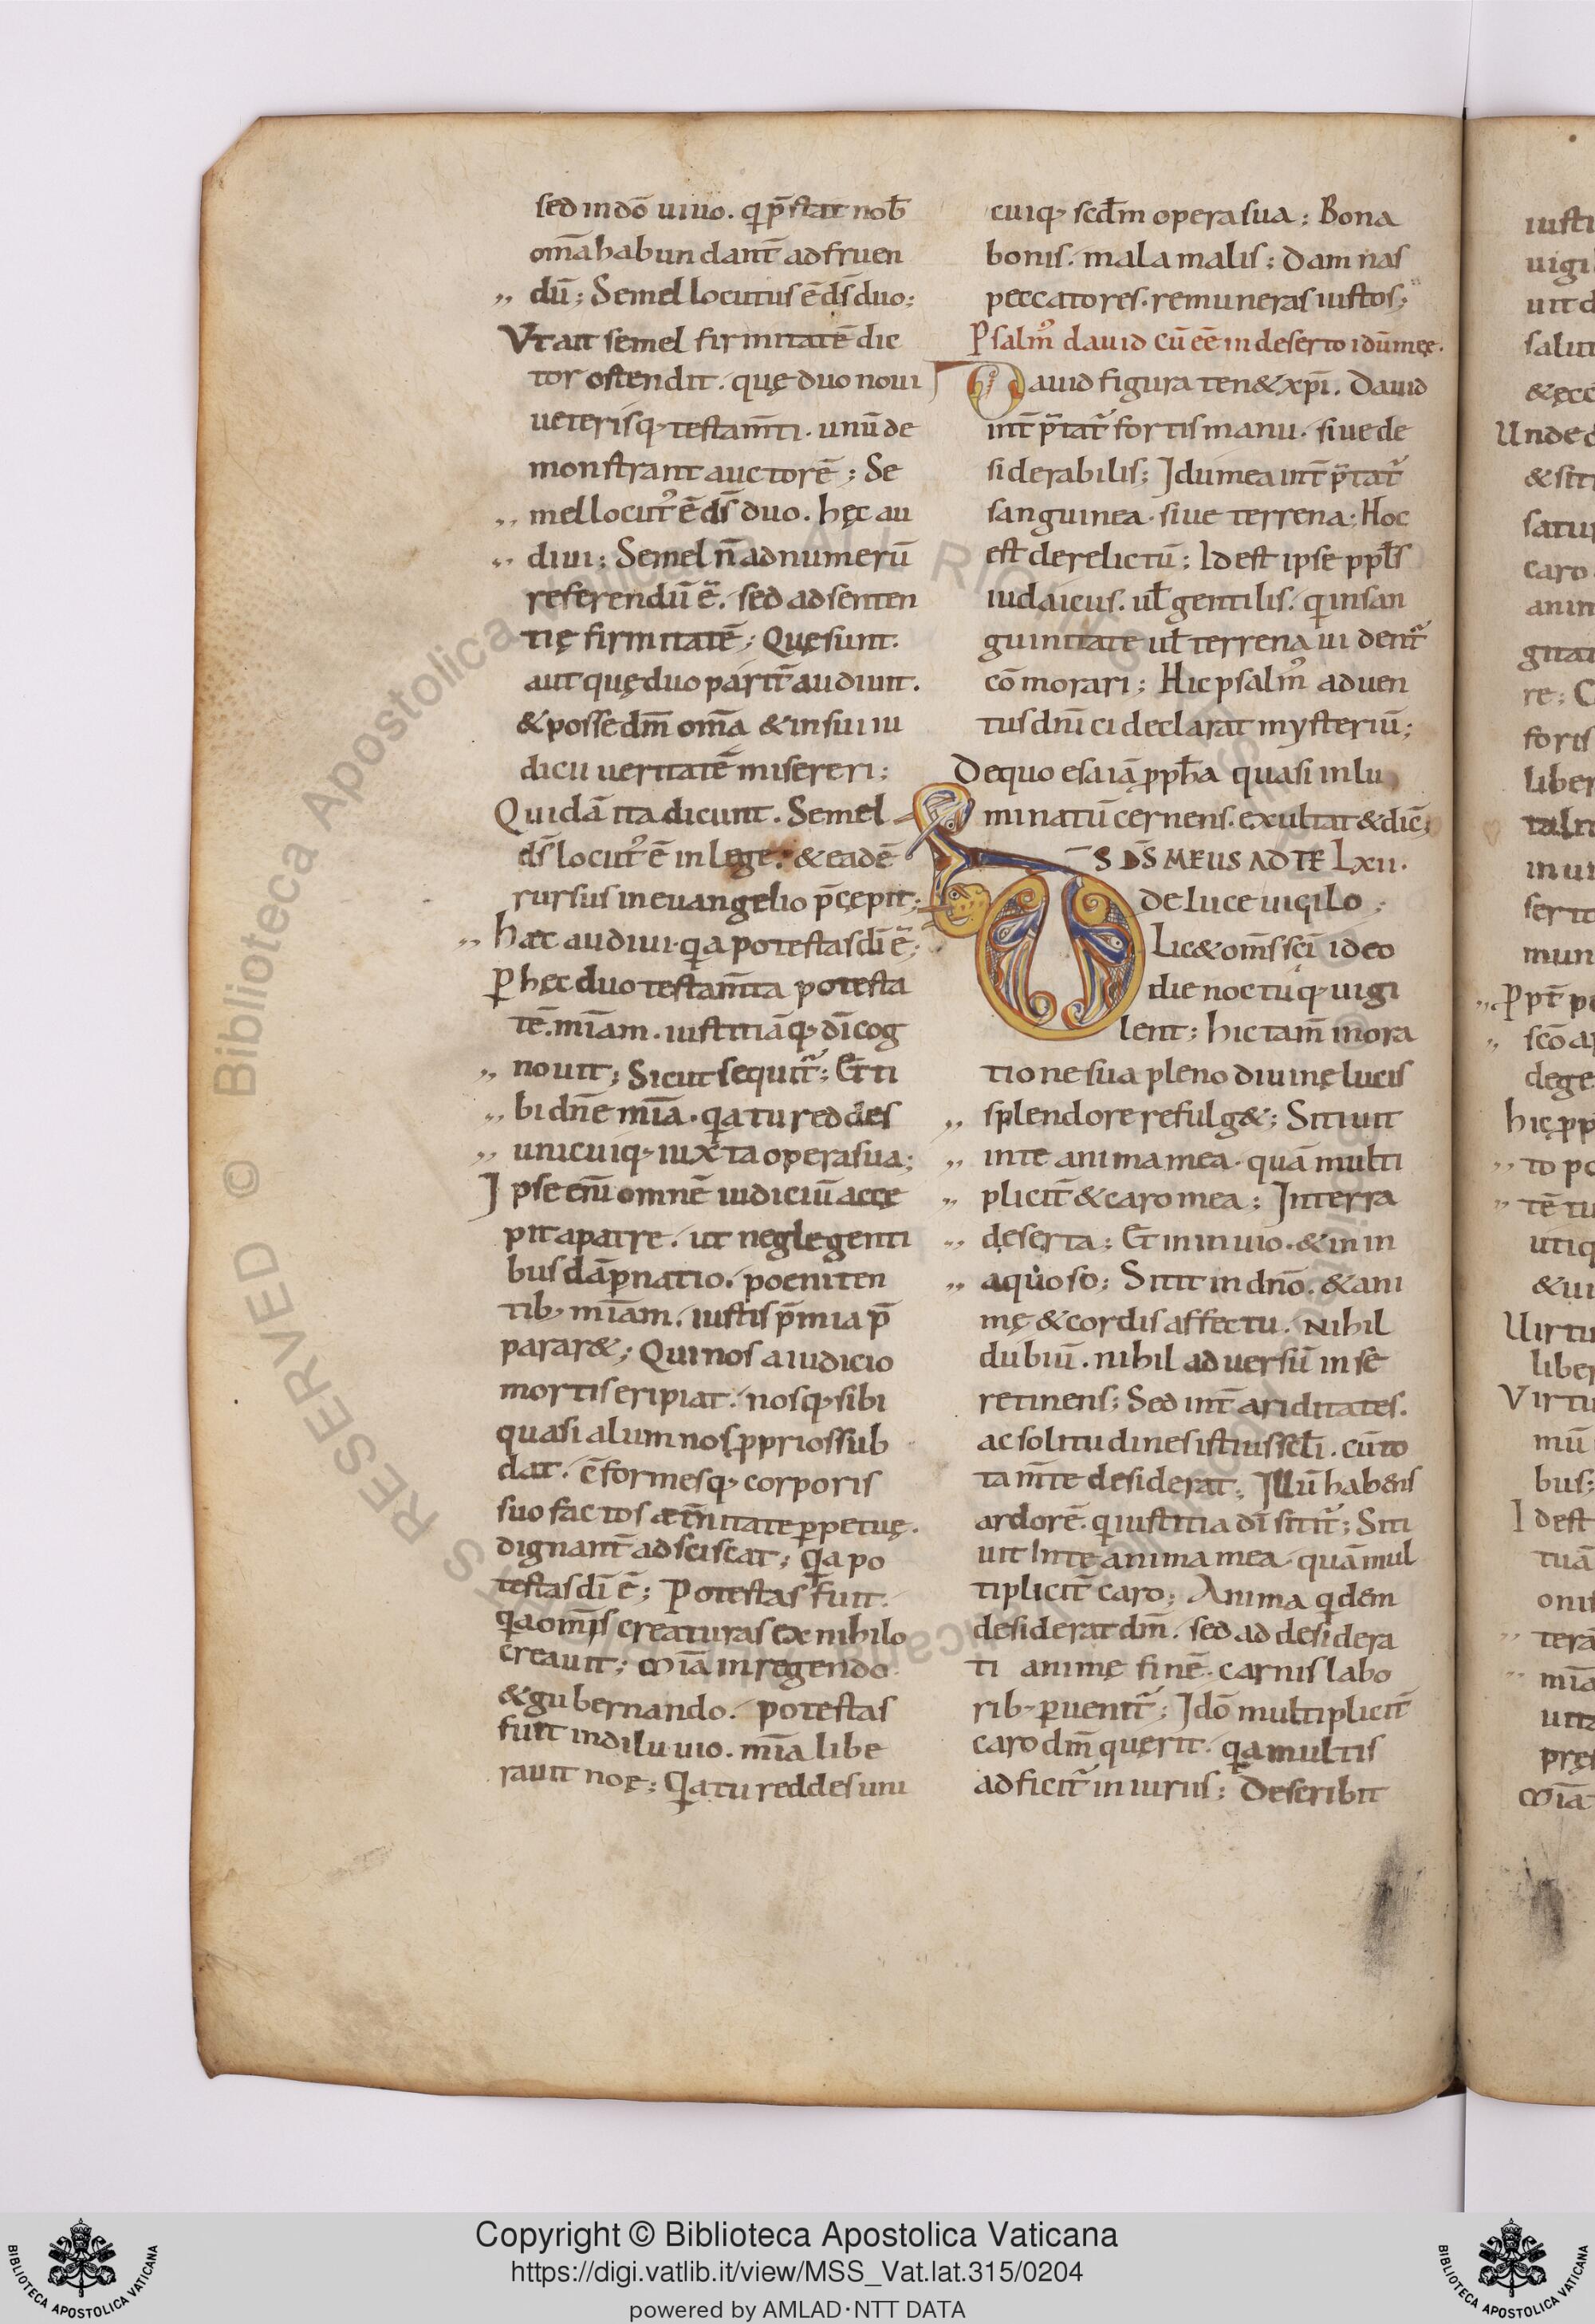 sed in dō uiuo. q p̄stat nob̄
om̄a habundant̄ ad fruen
,, dū; Semel locutus ē d̄s duo;
Vt ait semel firmitatē dic
tor ostendit. quę duo noui
ueterisq; testam̄ti. unū de
monstrant auctorē; Se
,, mel locut᾽ ē d̄s duo. hęc au
,, diui; Semel n̄ ad numerū
referendū ē. sed ad senten
tię firmitatē; Quę sunt.
aut quę duo parit̄ audiuit.
& posse dm̄ om̄a & in sui iu
dicii ueritatē misereri;
Quidā ita dicunt. Semel
d̄s locut᾽ ē in lege. & eadē
rursus in euangelio p̄cępit;
,, haec audiui. qa potestas dī ē;
ꝑ hęc duo testam̄ta potesta
tē. mīam. iustitiāq; dī cog
,, nouit; Sicut sequit᾽; Et ti
,, bi dn̄e mīa. qa tu reddes
,, unicuiq; iuxta opera sua;
Ipse eni omnē iudiciū accę
pit a patre. ut neglegenti
bus dāpnatio. poeniten
tib; mīam. iustis p̄mia p̄
parar&; Qui nos a iudicio
mortis eripiat. nosq; sibi
quasi alumnos ꝓprios sub
dat. c̄formesq; corporis
suo factos aet̄nitate ꝑpetuę.
dignant̄ adsciscat; Qa po
testas dī ē; Potestas fuit.
qa om̄is creaturas ex nihilo
creauit; Mīa in regendo
& gubernando. potestas
fuit in diluuio. mīa libe
rauit noę; Qa tu reddes uni
cuiq; scd̄m opera sua; Bona
bonis. mala malis; Damnas
peccatores. remuneras iustos;
Psalm᾽ dauid cū eē in deserto idūmęę.
Dauid figura ten& xpī. Dauid
int̄p̄tat᾽ fortis manu. siue de
siderabilis; Idumea int̄p̄tat᾽
sanguinea. siue terrena; Hoc
est derelictū; Id est ipse ppl̄s
iudaicus. ul̄ gentilis. q in san
guinitate ul̄ terrena uident᾽
cōmorari; Hic psalm᾽ aduen
tus dn̄ici declarat mysteriū;
De quo esaiā ꝓph̄a quasi inlu
minatū cernens. exultat & dic̄;
DS D̄S MEUS AD TE Lxii.
de luce uigilo;
Lic& om̄s sc̄i ideo
die noctuq; uigi
lent; hic tam̄ in ora
tione sua pleno diuinę lucis
,, splendore refulg&; Sitiuit
,, in te anima mea. quā multi
,, plicit̄ & caro mea; In terra
,, deserta; Et in inuio. & in in
,, aquoso; Sitit in dn̄o. & ani
mę & cordis affectu. Nihil
dubiū. nihil aduersū in se
retinens; Sed int̄ ariditates.
ac solitudines istius scl̄i. cū to
ta m̄te desiderat; Illū habens
ardorē. q iustitia dī sitit᾽; Siti
uit in te anima mea. quā mul
tiplicit̄ caro; Anima qdem
desiderat dm̄. sed ad desidera
ti animę finē. carnis labo
rib; ꝑuenit᾽; Idō multiplicit̄
caro dm̄ quęrit. qa multis
adficit᾽ iniuriis; Describit
Copyright © Biblioteca Apostolica Vaticana
https://digi.vatlib.it/view/MSS_Vat.lat.315/0204
powered by AMLAD·NTT DATA